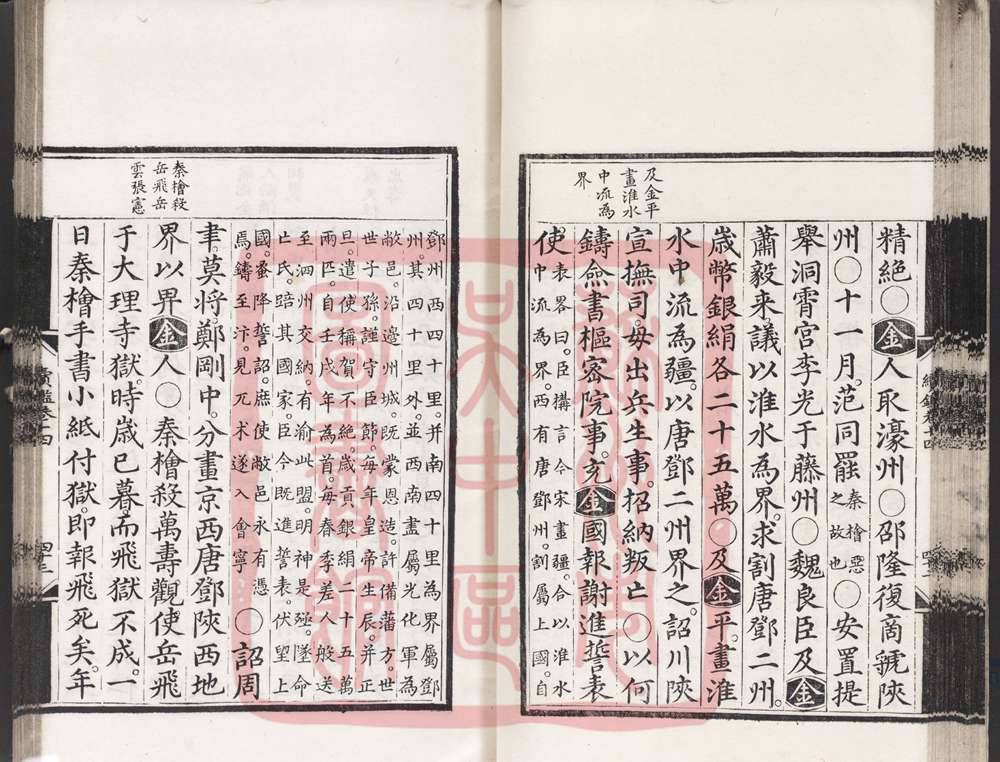 及金平
畫淮水
中流為
界
精絶〇金人取濠州〇邵隆復商虢陝
州〇十一月范同罷秦檜惡之故也〇安置提
舉洞霄宮李光于藤州〇魏良臣及金
蕭毅来議以淮水為界求割唐鄧二州
歲幣銀絹各二十五萬〇及金平畫淮
水中流為疆以唐鄧二州界之詔川陝
宣撫司毋出兵生事招納叛亡〇以何
鑄僉書樞密院事充金國報謝進誓表
使表畧曰臣構言今宋畫疆合以淮水中流為界西有唐鄧州割屬上國自
秦檜殺
岳飛岳
雲張憲
鄧州西四十里并南四十里為界屬鄧
州其四十里外並西南盡屬光化軍為
敝邑沿邊州城既蒙恩造許備藩方世
世子孫謹守臣節每年皇帝生辰并正
旦遣使稱賀不絶歲貢銀絹二十五萬
兩匹自壬戌年為首每春季差人般送
至泗州交納有渝此盟明神是殛墜命
亡氏踣其國家臣今既進誓表伏望上
國蚤降誓詔庶使敝邑永有憑
焉鑄至汴見兀术遂入會寧〇詔周
聿莫將鄭剛中分畫京西唐鄧陝西地
界以畀金人〇秦檜殺萬壽觀使岳飛
于大理寺獄時歲已暮而飛獄不成一
日秦檜手書小紙付獄即報飛死矣年